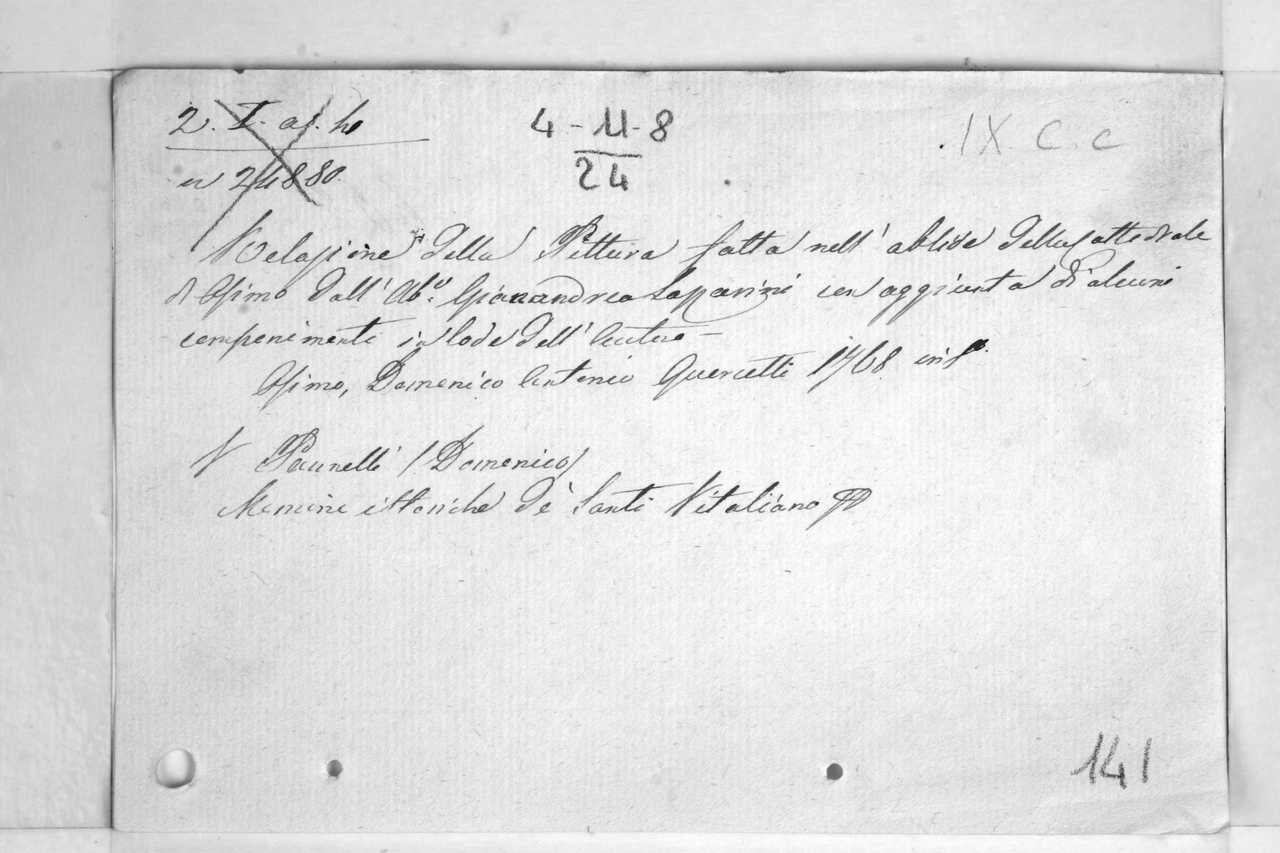 2. I. a. h
n 24880.
4-11-8
24
IX C. C
Relazione della Pittura fatta nell' abside della Cattedrale
di Osimo dall' Ab.e Gianandrea Lazzarini con aggiunta di alcuni
componimenti in lode dell' Autore -
Osimo, Domenico Antonio Quercetti 1768 in f°.
V Pannelli (Domenico)
Memorie istoriche de' Santi Vitaliano
141